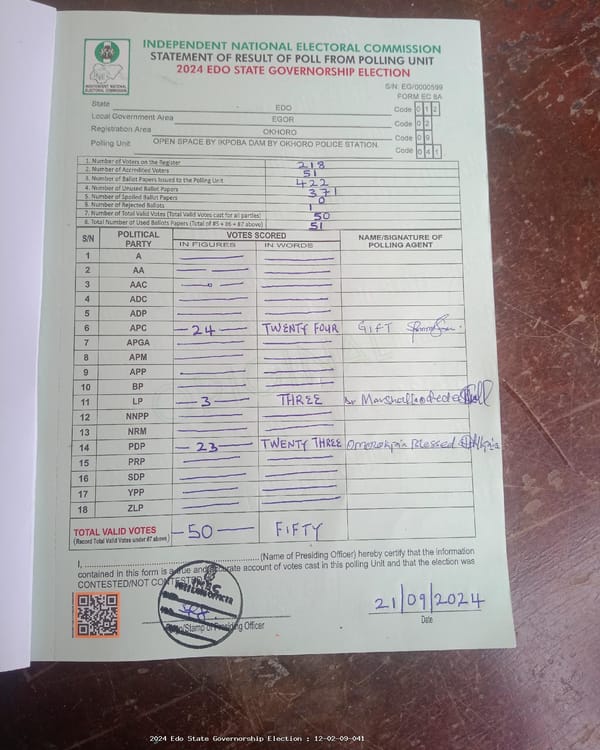 INDEPENDENT NATIONAL ELECTORAL COMMISSION
STATEMENT OF RESULT OF POLL FROM POLLING UNIT
2024 EDO STATE GOVERNORSHIP ELECTION
INDEPENDENT NATIONAL ELECTORAL COMMISSION
S/N: EG/0000599
FORM EC 8A
State EDO Code 0 1 2
Local Government Area EGOR Code 0 2
Registration Area OKHORO Code 0 9
Polling Unit OPEN SPACE BY IKPOBA DAM BY OKHORO POLICE STATION. Code 0 4 1
1. Number of Voters on the Register 218
2. Number of Accredited Voters 51
3. Number of Ballot Papers Issued to the Polling Unit 422
4. Number of Unused Ballot Papers 371
5. Number of Spoiled Ballot Papers 0
6. Number of Rejected Ballots 1
7. Number of Total Valid Votes (Total Valid Votes cast for all parties) 50
8. Total Number of Used Ballot Papers (Total of #5 + #6 + #7 above) 51
S/N POLITICAL PARTY VOTES SCORED NAME/SIGNATURE OF POLLING AGENT
IN FIGURES IN WORDS
1 A
2 AA
3 AAC
4 ADC
5 ADP
6 APC 24 TWENTY FOUR GIFT
7 APGA
8 APM
9 APP
10 BP
11 LP 3 THREE
12 NNPP
13 NRM
14 PDP 23 TWENTY THREE Blessed
15 PRP
16 SDP
17 YPP
18 ZLP
TOTAL VALID VOTES 50 FIFTY
(Record Total Valid Votes under #7 above)
I, (Name of Presiding Officer) hereby certify that the information
contained in this form is a true and accurate account of votes cast in this polling Unit and that the election was
CONTESTED/NOT CONTESTED
INEC
PRESIDING OFFICER
21/09/2024
/Stamp of Presiding Officer Date
2024 Edo State Governorship Election : 12-02-09-041